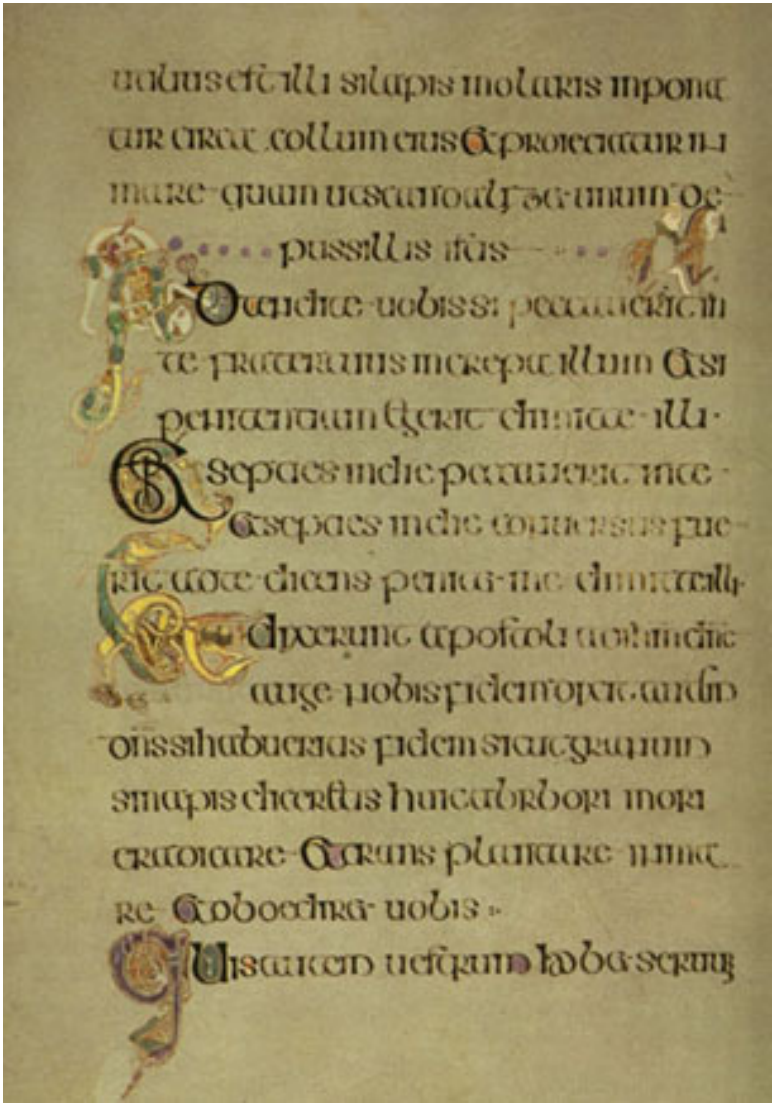 utilius est illi si lapis molaris inpona
tur circa collum eius et proieciatur in
mare quam ut scandalizet unum de
pussillis istis
Adtendite uobis si peccauerit in
te frater tuus increpa illum et si
penitentiam egerit dimitte illi
Et septies in die peccauerit in te
et septies in die conuersus fue
rit ad te dicens penitet me dimitte illi
Et dixerunt apostoli
auge nobis fidem
si habueritis fidem sicut granum
sinapis diceretis huic arbori mori
eradicare et transplantare in ma
re et oboediret uobis
Quis autem uestrum habet seruum